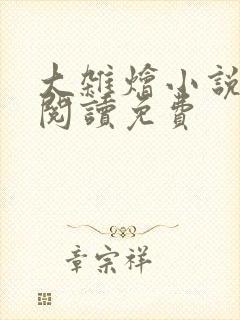 大雜燴小說
閱讀免費
章宗祥